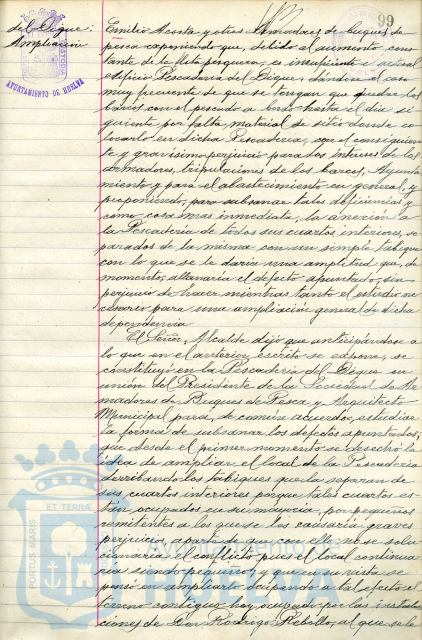 99
del Dique:
Ampliación
AYUNTAMIENTO DE HUELVA
Emilio Acosta y otros Armadores de buques de
pesca exponiendo que, debido al aumento cons
tante de la flota pesquera, es insuficiente el actual
edificio Pescadería del Dique, dándose el caso
muy frecuente de que se tengan que quedar los
barcos con el pescado a bordo hasta el día si
guiente por falta material de sitio donde co
locarlo en dicha Pescadería, con el consiguien
te y gravísimo perjuicio para los intereses de los
armadores, tripulaciones de los barcos, Ayunta
miento y para el abastecimiento en general, y
proponiendo, para subsanar tales deficiencias y
como cosa más inmediata, la anexión a
la Pescadería de todos sus cuartos interiores, se
parados de la misma con un simple tabique
con lo que se le daría una amplitud que, de
momento, allanaría el defecto apuntado, sin
perjuicio de hacer mientras tanto el estudio ne
cesario para una ampliación general de dicha
dependencia.
El Señor Alcalde dijo que anticipándose a
lo que en el anterior escrito se expone, se
constituyó en la Pescadería del Dique en
unión del Presidente de la Sociedad de Ar
madores de Buques de Pesca y Arquitecto
Municipal para, de común acuerdo, estudiar
la forma de subsanar los defectos apuntados,
que desde el primer momento se desechó la
idea de ampliar el local de la Pescadería
derribando los tabiques que la separan de
sus cuartos interiores porque tales cuartos es
tán ocupados en su mayoría, por pequeños
remitentes a los que se les causaría graves
perjuicios, aparte de que con ello no se solu
cionaría el conflicto pues el local continua
ría siendo pequeño; y que en su vista se
pensó en ampliarlo ocupando a tal efecto el
terreno contiguo hoy ocupado por las instala
ciones de Don Rodrigo Rebollo, al que se le
PORTUS MARIS ET TERRAE
HUELVA